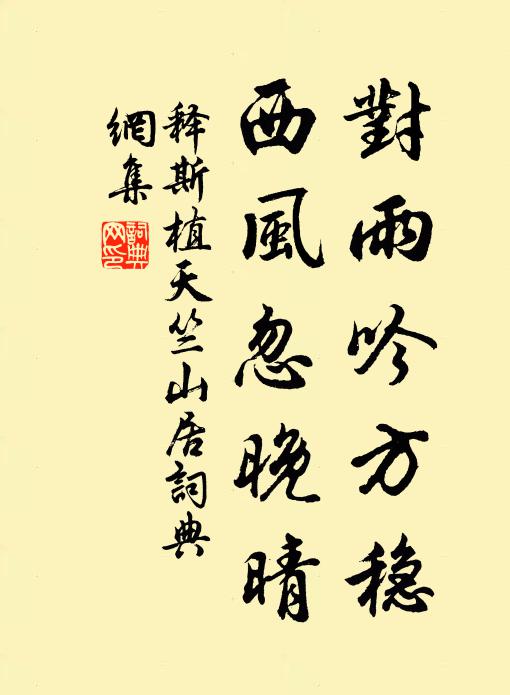 對雨吟方穏
西風忽晚晴
释斯植天竺山居詞典
網集
詞典網印